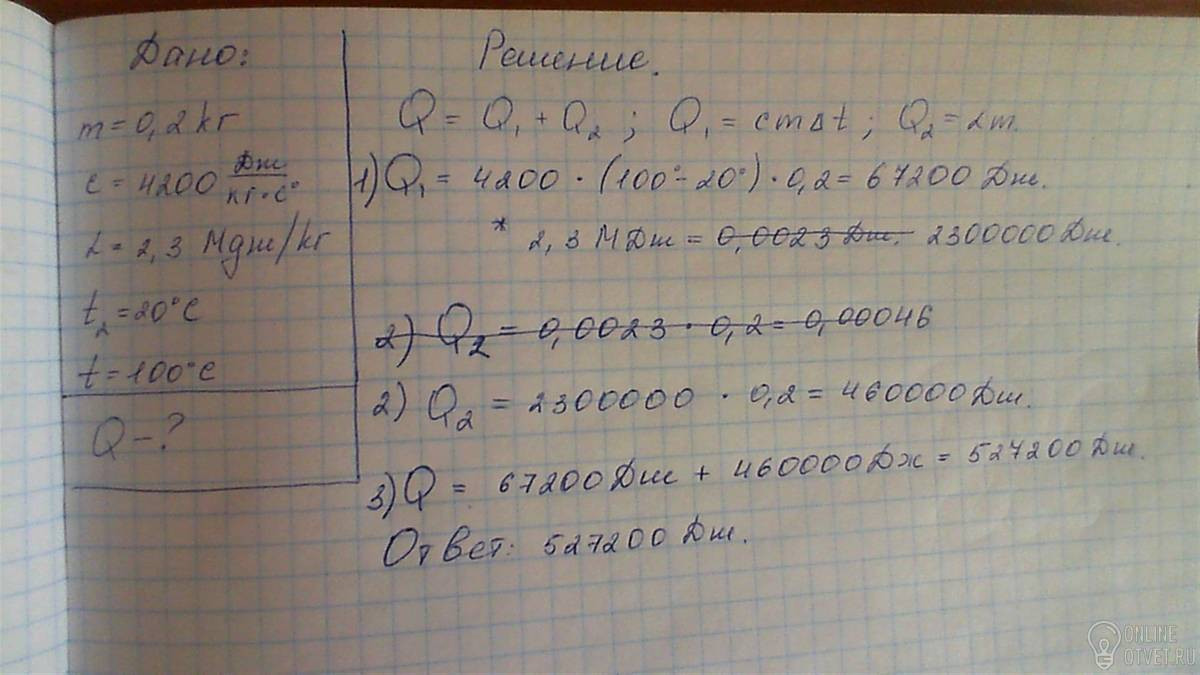 Дано:
m = 0,2 кг
c = 4200 Дж/кг·С°
L = 2,3 Мдж/кг
t₂ = 20°С
t = 100°С
Q - ?
Решение.
Q = Q₁ + Q₂ ; Q₁ = cmΔt ; Q₂ = Lm.
1) Q₁ = 4200 · (100° - 20°) · 0,2 = 67200 Дж.
* 2,3 МДж = 0,0023 Дж. 2300000 Дж.
2) Q₂ = 0,0023 · 0,2 = 0,00046
2) Q₂ = 2300000 · 0,2 = 460000 Дж.
3) Q = 67200 Дж + 460000 Дж = 527200 Дж.
Ответ: 527200 Дж.
ONLINE
OTVET.RU